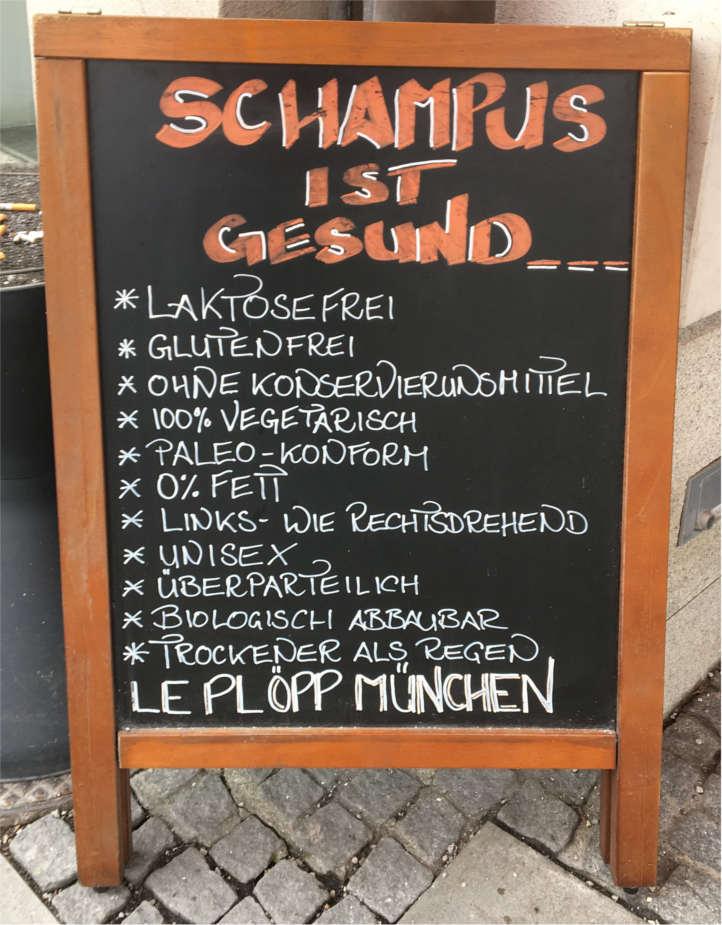 SCHAMPUS
IST
GESUND___
* LAKTOSEFREI
* GLUTENFREI
* OHNE KONSERVIERUNSMITTEL
* 100% VEGETARISCH
* PALEO-KONFORM
* 0% FETT
* LINKS- WIE RECHTSDREHEND
* UNISEX
* ÜBERPARTEILICH
* BIOLOGISCH ABBAUBAR
* TROCKENER ALS REGEN
LE PLÖPP MÜNCHEN